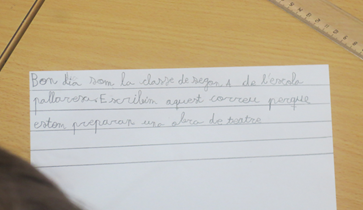 Bon dia som la classe de segon A de l'escola
pallaresa. Escribim aquest correu perque
estem preparan una obra de teatre